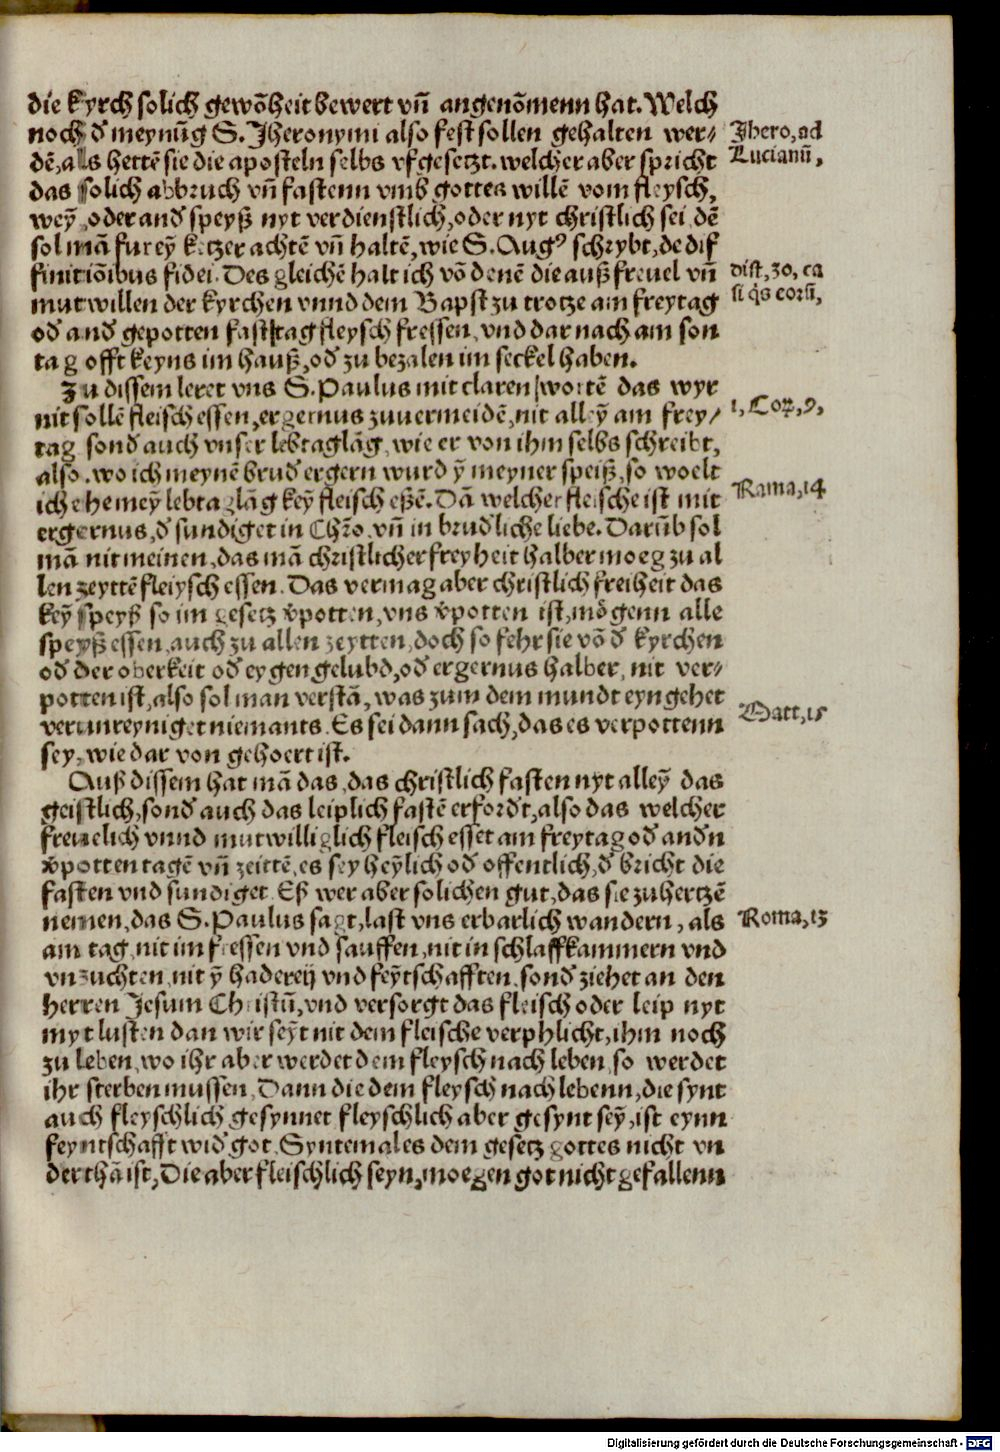 die kyrch solich gewõheit bewert vñ angenõmenn hat. Welch
noch d̕ meynũg S. Jheronymi also fest sollen gehalten wer/
dẽ, als hettẽ sie die aposteln selbs vfgesetzt. welcher aber spricht
das solich abbruch vñ fastenn vmb gottes willẽ vom fleysch,
weỹ, oder and̕ speyß nyt verdienstlich, oder nyt christlich sei, dẽ
sol mã fur eỹ ketzer achtẽ vñ haltẽ, wie S. Augꝰ schrybt, de dif
finitiõibus fidei. Des gleichẽ halt ich võ denẽ die auß freuel vñ
mutwillen der kyrchen vnnd dem Bapst zu trotze am freytag
od̕ and̕ gepotten fasttag fleysch fressen, vnd dar nach am son
tag offt keyns im hauß, od̕ zu bezalen im seckel haben.
Zu dissem leret vns S. Paulus mit claren wortẽ das wyr
nit sollẽ fleisch essen, ergernus zuuermeidẽ, nit alleỹ am frey/
tag sond̕ auch vnser lebtaglãg, wie er von ihm selbs schreibt,
also. wo ich meynẽ brud̕ ergern wurd ỹ meyner speiß, so woelt
ich ehe meỹ lebtaglãg keỹ fleisch eßẽ. Dã welcher fleische ist mit
ergernus, d̕ sundiget in Chr̃o, vñ in brud̕liche liebe. Darũb sol
mã nit meinen, das mã christlicher freyheit halber moeg zu al
len zeyttẽ fleiysch essen. Das vermag aber christlich freiheit das
keỹ speyß so im gesetz v̕potten, vns v̕potten ist, mögenn alle
speyß essen, auch zu allen zeytten, doch so fehr sie võ d̕ kyrchen
od̕ der oberkeit od̕ eygen gelubd, od̕ ergernus halber, nit ver/
potten ist, also sol man verstã, was zum dem mundt eyngehet
verunreyniget niemants. Es sei dann sach, das es verpottenn
sey, wie dar von gehoert ist.
Auß dissem hat mã das, das christlich fasten nyt alleỹ das
geistlich, sond̕ auch das leiplich fastẽ erford̕t, also das welcher
freuelich vnnd mutwilliglich fleisch esset am freytag od̕ and̕n
v̕potten tagẽ vñ zeittẽ, es sey heỹlich od̕ offentlich, d̕ bricht die
fasten vnd sundiget. Eß wer aber solichen gut, das sie zuhertzẽ
nemen, das S. Paulus sagt, last vns erbarlich wandern, als
am tag, nit im fressen vnd sauffen, nit in schlaffkammern vnd
vnzuchten, nit ỹ haderey vnd feỹtschafften, sond̕ ziehet an den
herren Jesum Christũ, vnd versorgt das fleisch oder leip nyt
myt lusten dan wir seỹt nit dem fleische verphlicht, ihm noch
zu leben, wo ihr aber werdet dem fleysch nach leben, so werdet
ihr sterben mussen, Dann die dem fleysch nach lebenn, die synt
auch fleyschlich gesynnet fleyschlich aber gesynt seỹ, ist eynn
feyntschafft wid̕ got. Syntemal es dem gesetz gottes nicht vn
derthã ist, Die aber fleischlich seyn, moegen got nicht gefallenn
Jhero, ad
Lucianũ,
dist, 30, ca
si q̃s corũ,
1, Coꝝ, 9,
Rama, 14
Matt, 15
Roma, 13
Digitalisierung gefördert durch die Deutsche Forschungsgemeinschaft - DFG